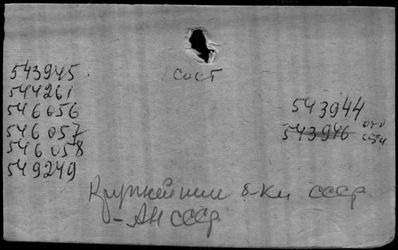 сост
543945
544261
546056
546057
546058
549249
543944
543946
Крупнейшие б-ки СССР
- АН СССР